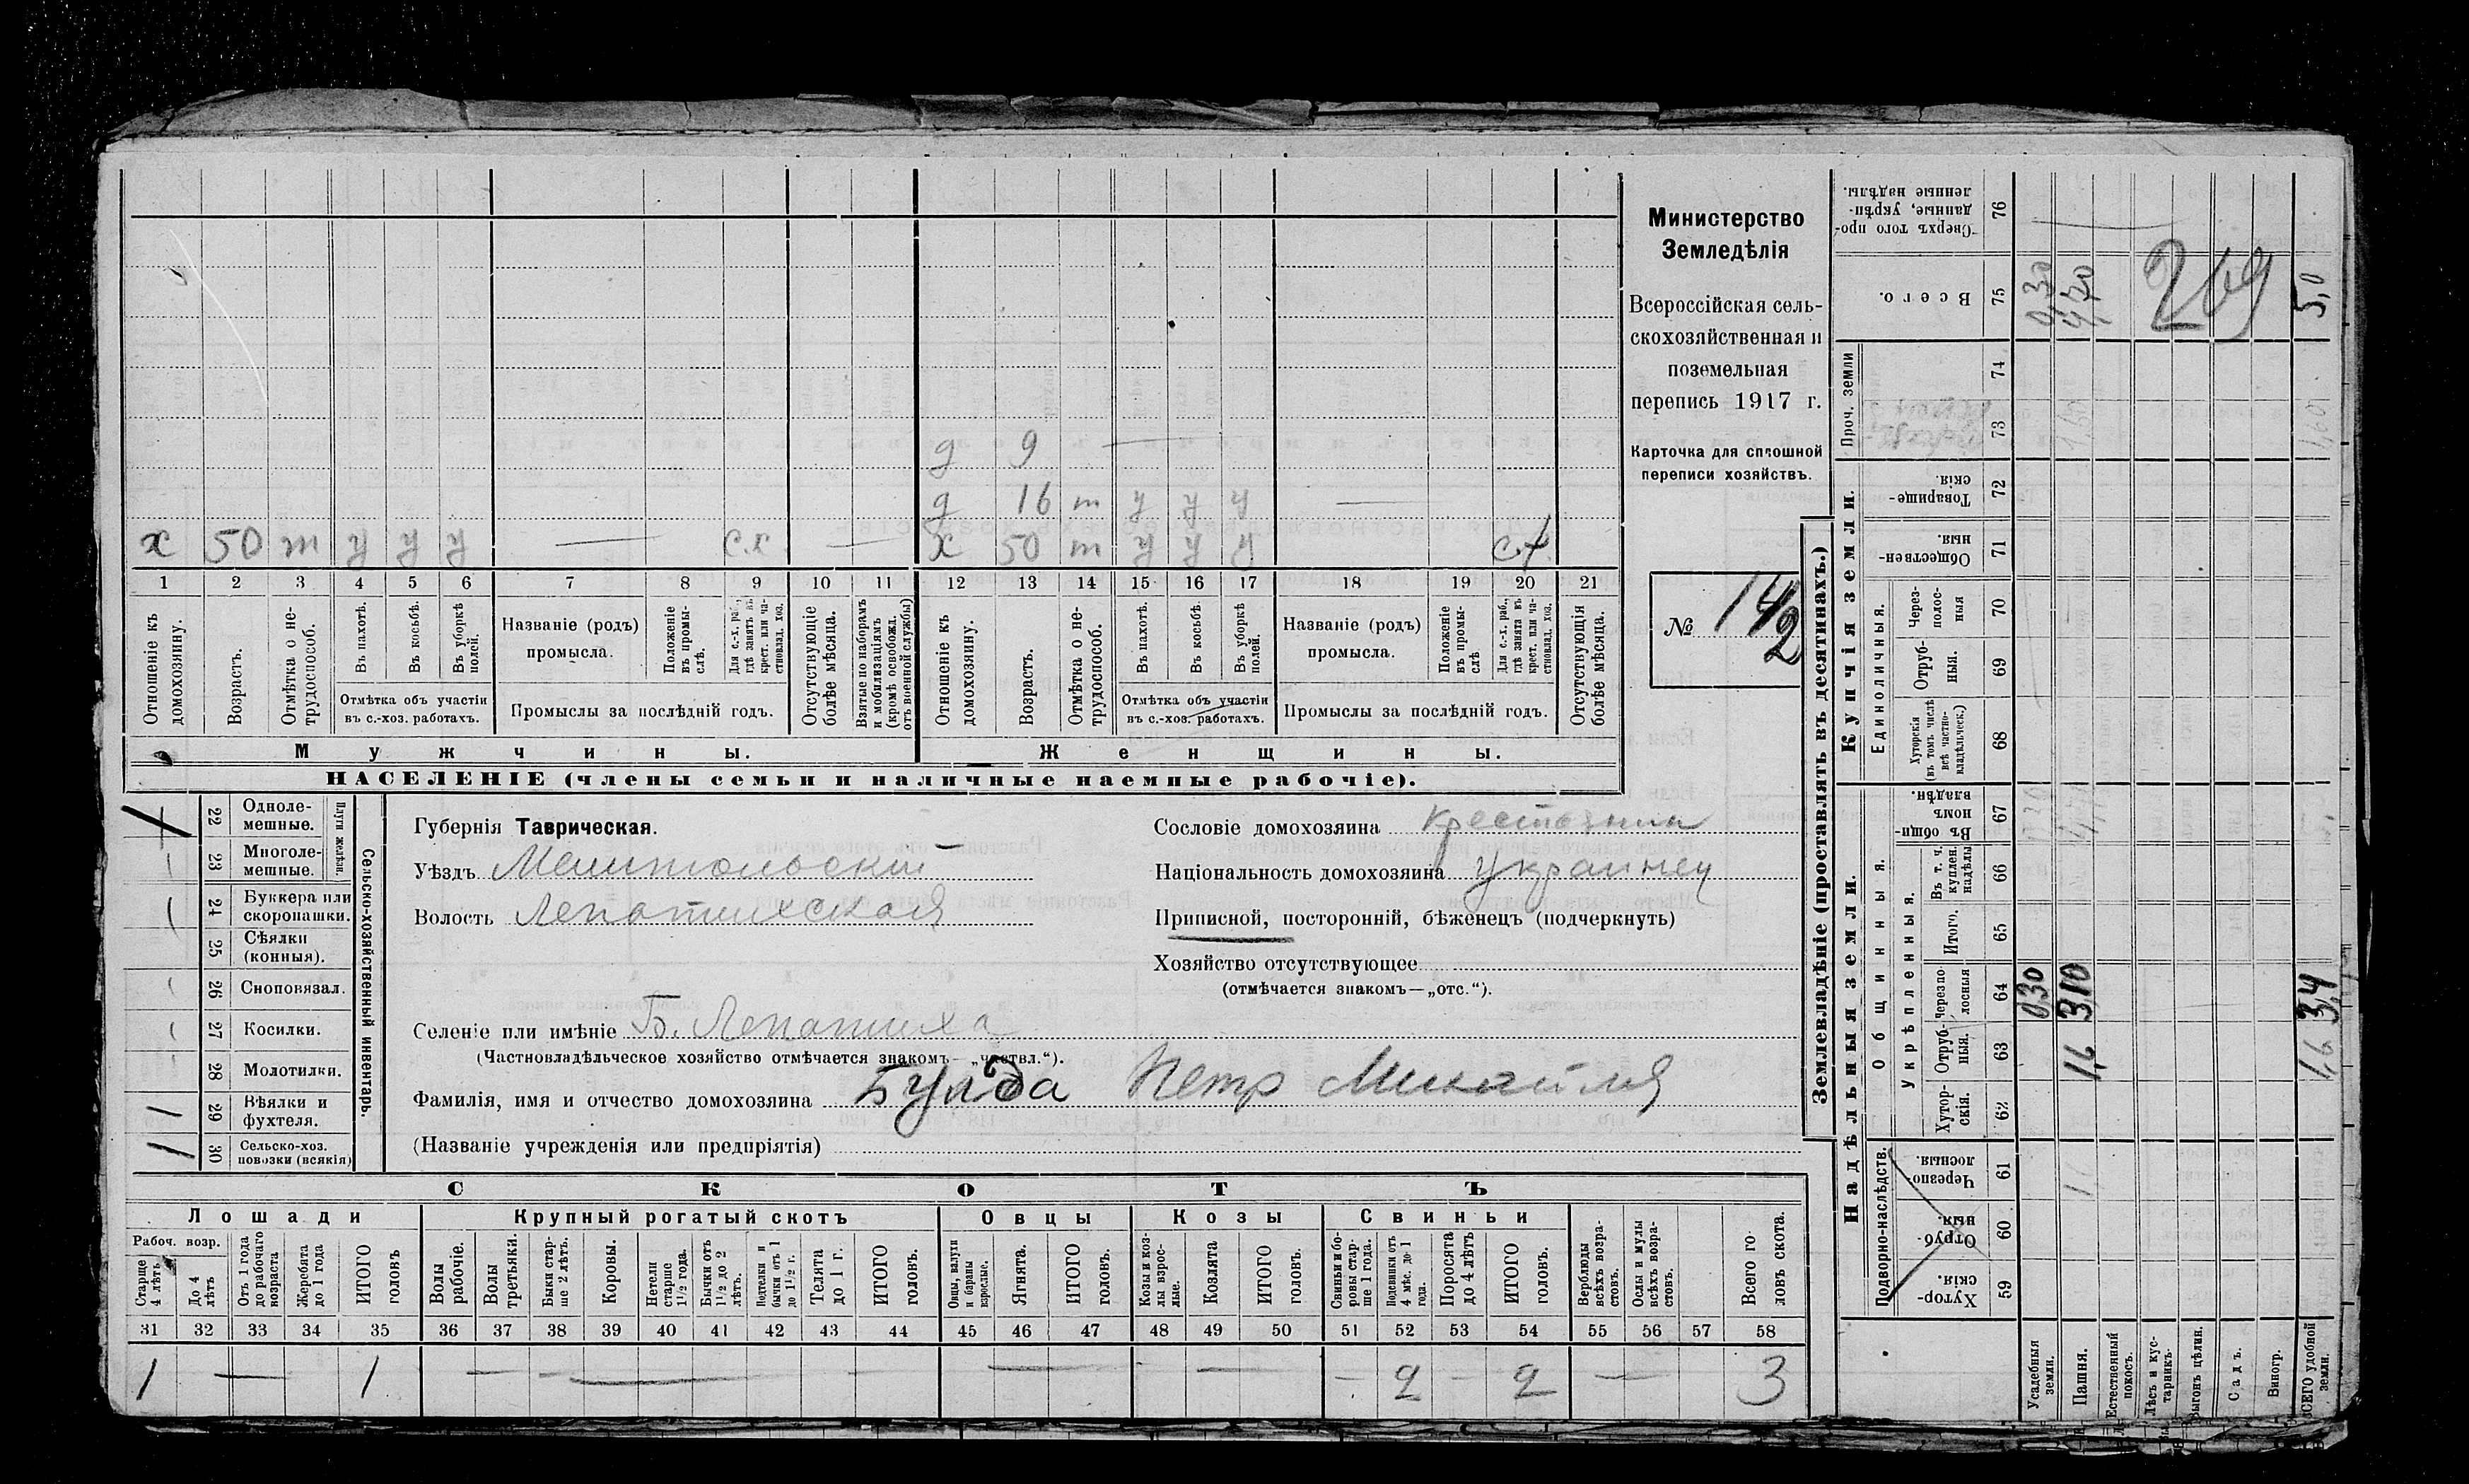 х 50 т у у у — с.х —
д 9 —
д 16 т у у у —
х 50 т у у у с.х.
1 2 3 4 5 6 7 8 9 10 11 12 13 14 15 16 17 18 19 20 21
Отношеніе къ домохозяину.
Возрастъ.
Отмѣтка о нетрудоспособ.
Въ пахотѣ.
Въ косьбѣ.
Въ уборкѣ полей.
Отмѣтка объ участіи
въ с.-хоз. работахъ.
Названіе (родъ)
промысла.
Положеніе въ промыслѣ.
Для с.-х. раб., гдѣ занятъ въ крест. или частновлад. хоз.
Промыслы за послѣдній годъ.
Отсутствующіе болѣе мѣсяца.
Взятые по наборамъ и мобилизаціямъ (кромѣ освобожд. отъ военной службы)
Отношеніе къ домохозяину.
Возрастъ.
Отмѣтка о нетрудоспособ.
Въ пахотѣ.
Въ косьбѣ.
Въ уборкѣ полей.
Отмѣтка объ участіи
въ с.-хоз. работахъ.
Названіе (родъ)
промысла.
Положеніе въ промыслѣ
Для с.-х. раб., гдѣ занята въ крест. или частновлад. хоз.
Промыслы за послѣдній годъ.
Отсутствующія болѣе мѣсяца.
Мужчины.
Женщины.
НАСЕЛЕНІЕ (члены семьи и наличные наемные рабочіе).
Министерство
Земледѣлія
Всероссійская сель-
скохозяйственная и
поземельная
перепись 1917 г.
Карточка для сплошной
переписи хозяйствъ.
№ 14/2
Сельско-хозяйственный инвентарь.
Плуги желѣзн.
22 Одноле-
мешные.
23 Многоле-
мешные.
24 Буккера или
скоропашки.
25 Сѣялки
(конныя).
26 Сноповязал.
27 Косилки.
28 Молотилки.
29 Вѣялки и
фухтеля. 1
30 Сельско-хоз.
повозки (всякія) 1
Губернія Таврическая.
Уѣздъ Мелитопольский
Волость Лепатихская
Сословіе домохозяина Крестьянин
Національность домохозяина украинец
Приписной, посторонній, бѣженецъ (подчеркнуть)
Хозяйство отсутствующее
(отмѣчается знакомъ—„отс.“).
Селеніе или имѣніе Б. Лепатиха
(Частновладѣльческое хозяйство отмѣчается знакомъ—„частвл.“).
Фамилія, имя и отчество домохозяина Булда Петр Михайля
(Названіе учрежденія или предпріятія)
СКОТЪ
Лошади
Крупный рогатый скотъ
Овцы
Козы
Свиньи
Рабоч. возр.
Старше 4 лѣтъ
До 4 лѣтъ
Отъ 1 года до рабочаго возраста
Жеребята до 1 года
ИТОГО головъ
Волы рабочіе.
Волы третьяки.
Быки старше 2 лѣтъ.
Коровы.
Нетели старше 1½ года.
Бычки отъ 1½ до 2 лѣтъ.
Подтелки и бычки отъ 1 до 1½ г.
Телята до 1 г.
ИТОГО головъ.
Овцы, валухи и бараны взрослые.
Ягнята.
ИТОГО головъ.
Козы и козлы взрослые.
Козлята
ИТОГО головъ.
Свиньи и боровы старше 1 года.
Подсвинки отъ 4 мѣс. до 1 года.
Поросята до 4 лѣтъ
ИТОГО головъ.
Верблюды всѣхъ возрастовъ.
Ослы и мулы всѣхъ возрастовъ.
Всего головъ скота.
31 32 33 34 35 36 37 38 39 40 41 42 43 44 45 46 47 48 49 50 51 52 53 54 55 56 57 58
1 — 1 — — — — — — 2 — 2 — 3
Землевладѣніе (проставлять въ десятинахъ.)
Купчія земли.
Надѣльныя земли.
Сверхъ того проданные, укрѣпленные надѣлы. 76
Всего. 75 0,30 4,70 5,0
269
Проч. земли
74
73
Товарищескія. 72
Общественныя. 71
Единоличныя.
Черезполосныя 70
Отрубныя. 69
Хуторскія (въ томъ числѣ всѣ частновладѣльческ.) 68
Общинныя.
Въ общинномъ владѣн. 67
Укрѣпленныя.
Въ т. ч. куплен. надѣлы 66
Итого. 65
Черезполосныя 64 0,30 3,10 3,4
Отрубныя. 63 1,6 1,6
Хуторскія. 62
Подворно-наслѣдств.
Черезполосныя. 61
Отрубныя. 60
Хуторскія. 59
Усадебныя земли.
Пашня.
Естественный покосъ.
Лѣсъ и кустарникъ.
Выгонъ цѣлин.
Садъ.
Виногр.
ВСЕГО удобной земли.